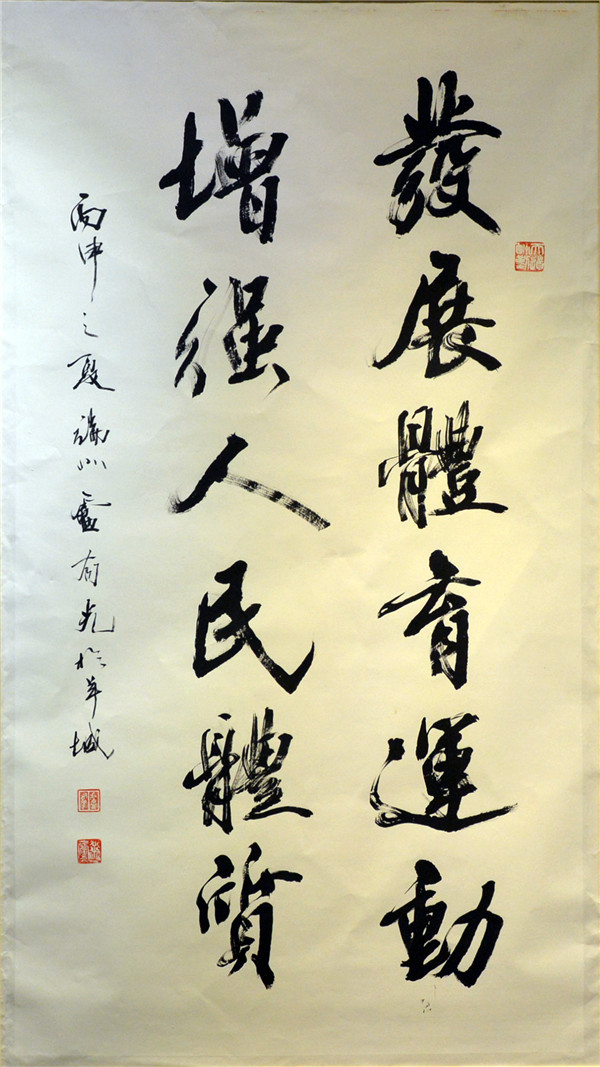 發展體育運動
增强人民體質
丙申之夏 盧有光於羊城